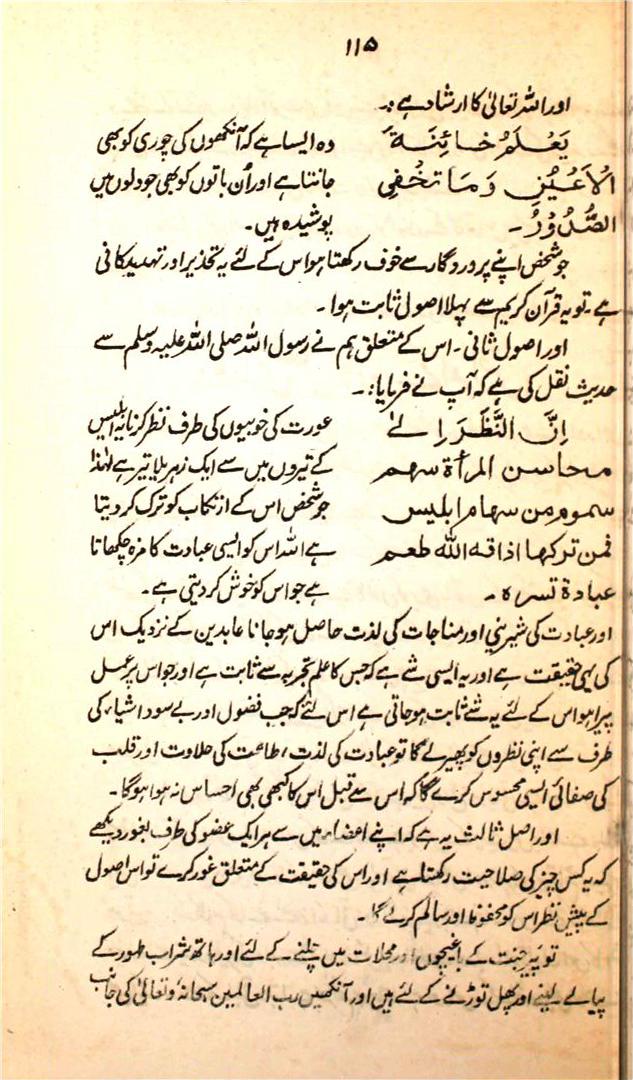 ۱۱۵
اور اللہ تعالیٰ کا ارشاد ہے :۔
یَعْلَمُ خَائِنَۃَ
الْاَعْیُنِ وَمَا تُخْفِی
الصُّدُوْرُ ۔
وہ ایسا ہے کہ آنکھوں کی چوری کو بھی
جانتا ہے اور اُن باتوں کو بھی جو دلوں میں
پوشیدہ ہیں۔
جو شخص اپنے پروردگار سے خوف رکھتا ہو اس کے لئے یہ تحذیر اور تہدید کافی
ہے۔ تو یہ قرآن کریم سے پہلا اصول ثابت ہوا۔
اور اصول ثانی۔ اس کے متعلق ہم نے رسول اللہ صلی اللہ علیہ وسلم سے
حدیث نقل کی ہے کہ آپ نے فرمایا :۔
اِنَّ النَّظَرَ اِلٰے
محاسن المرأۃ سھم
سموم من سھام ابلیس
فمن ترکھا اذاقہ اللہ طعم
عبادۃ تسرہ ۔
عورت کی خوبیوں کی طرف نظر کرنا یہ ابلیس
کے تیروں میں سے ایک زہریلا تیر ہے لہٰذا
جو شخص اس کے ارتکاب کو ترک کر دیتا
ہے اللہ اس کو ایسی عبادت کا مزہ چکھاتا
ہے جو اس کو خوش کر دیتی ہے۔
اور عبادت کی شیرینی اور مناجات کی لذت حاصل ہو جانا عابدین کے نزدیک اس
کی یہی حقیقت ہے اور یہ ایسی شے ہے کہ جس کا علم تجربہ سے ثابت ہے اور جو اس پر عمل
پیرا ہو اس کے لئے یہ شے ثابت ہو جاتی ہے اس لئے کہ جب فضول اور بے سود اشیاء کی
طرف سے اپنی نظروں کو پھیر لے گا تو عبادت کی لذت، طاعت کی حلاوت اور قلب
کی صفائی ایسی محسوس کرے گا کہ اس سے قبل اس کا کبھی بھی احساس نہ ہوا ہوگا۔
اور اصل ثالث یہ ہے کہ اپنے اعضاء میں سے ہر ایک عضو کی طرف بغور دیکھے
کہ یہ کس چیز کی صلاحیت رکھتا ہے اور اس کی حقیقت کے متعلق غور کرے تو اس اصول
کے پیش نظر اس کو محفوظ اور سالم کرلے گا۔
تو پیر جنت کے باغیچوں اور محلات میں چلنے کے لئے اور ہاتھ شراب طہور کے
پیالے لینے اور پھل توڑنے کے لئے ہیں اور آنکھیں رب العالمین سبحانہٗ و تعالیٰ کی جانب